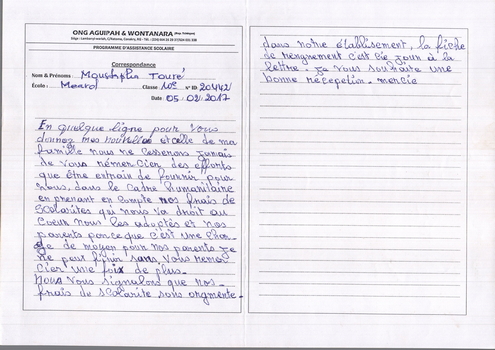 ONG AGUIPAH & WONTANARA
PROGRAMME D'ASSISTANCE SCOLAIRE
Correspondance
Nom & Prénoms : Moustapha Touré
École : Classe 10e N° ID 20442
Date : 05-02-2017
En quelque ligne pour vous
donnez mes nouvelles et celle de ma
famille nous ne cesserons jamais
de vous rémercier des efforts
que être entrain de fournir pour
nous, dans le cadre humanitaire
en prenant en compte nos frais de
scolarités qui nous va droit au
coeur nous les adoptés et nos
parents parce que c'est une char
ge de moyen pour nos parents je
ne peut finir sans vous remer
cier une foix de plus.
Nous vous signalons que nos
frais de scolarité sons augmenté
dans notre établisement, la fiche
de rensgnement c'est liée jour à la
lettre. Je vous souhaite une
bonne réception. mercie